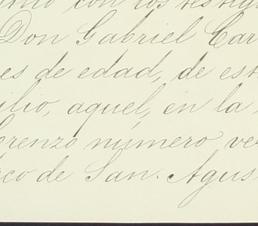 con los testig
Don Gabriel Car
es de edad, de est
ilio, aquel, en la
orenzo número ve
ico de San. Agus